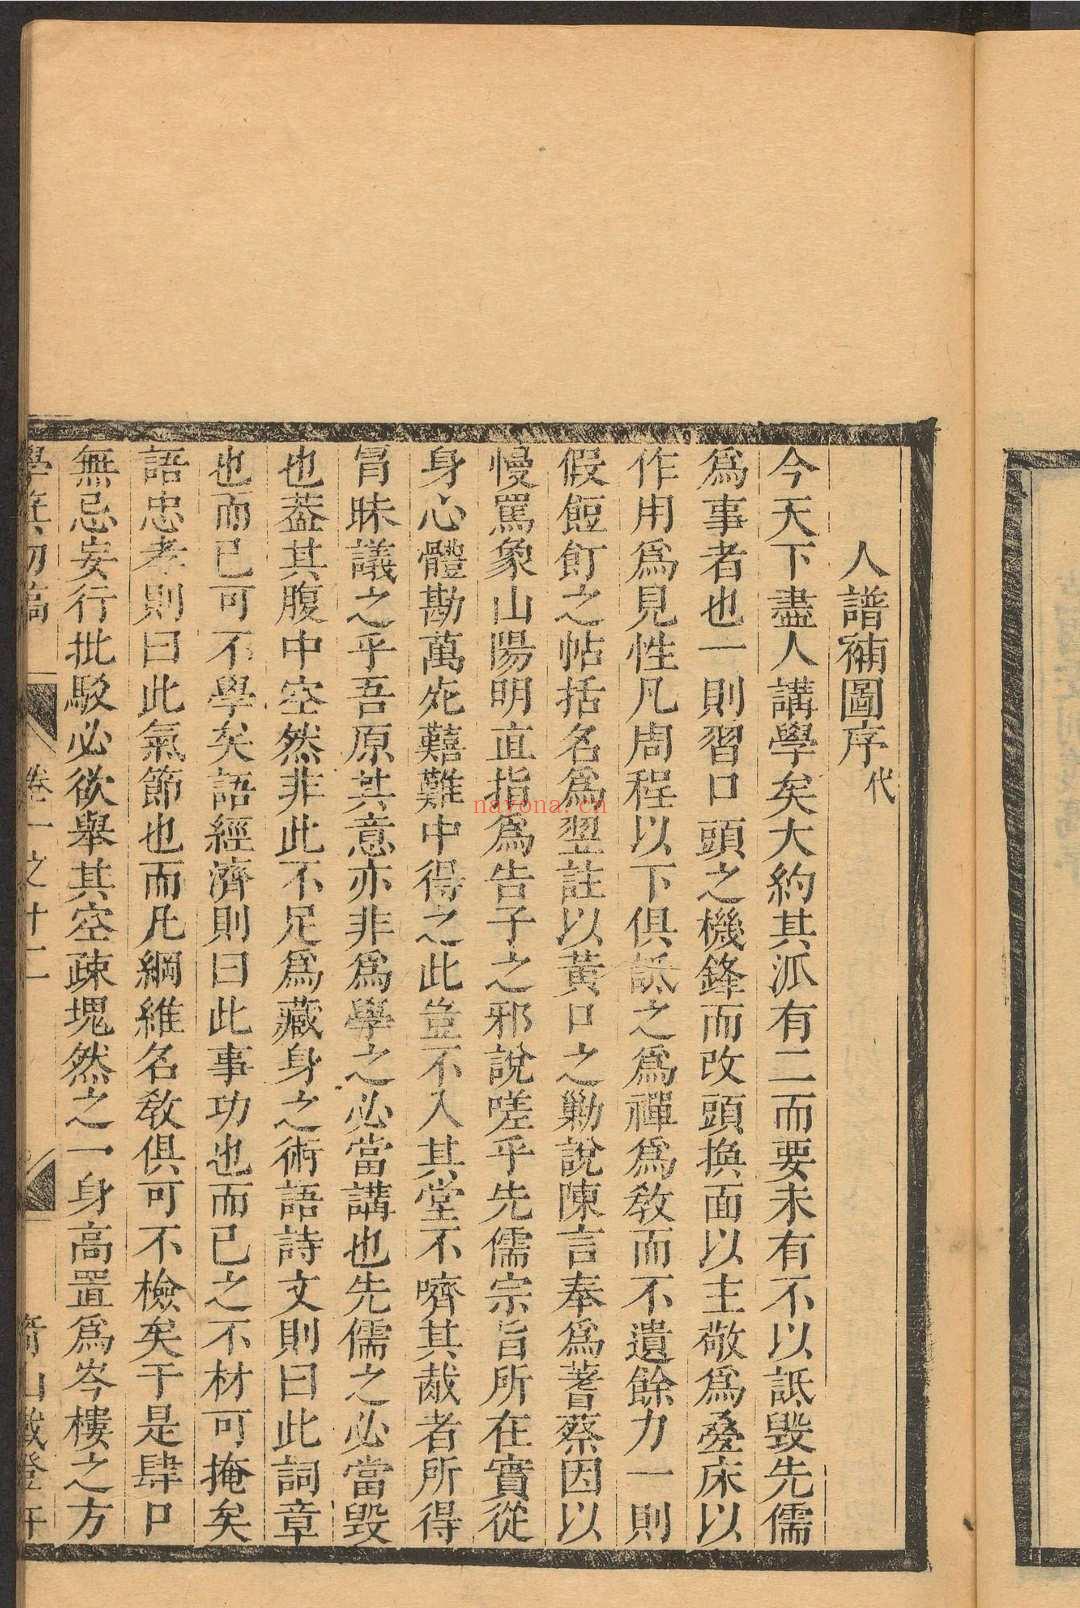 人譜補圖序代
今天下盡人講學矣大約其派有二而要未有不以詆毀先儒
爲事者也一則習口頭之機鋒而改頭換面以主敬爲疊床以
作用爲見性凡周程以下俱詆之爲禪爲教而不遺餘力一則
假餖飣之帖括名爲翌註以黃口之勦說陳言奉爲蓍蔡因以
慢罵象山陽明直指爲告子之邪說嗟乎先儒宗旨所在實從
身心體勘萬死囏難中得之此豈不入其堂不嚌其胾者所得
冐昧議之乎吾原其意亦非爲學之必當講也先儒之必當毀
也葢其腹中空然非此不足爲藏身之術語詩文則曰此詞章
也而已可不學矣語經濟則曰此事功也而已之不材可掩矣
語忠孝則曰此氣節也而凡綱維名教俱可不檢矣于是肆口
無忌妄行批駁必欲舉其空疎塊然之一身高置爲岑樓之方
學箕初稿 卷一之十二
nayona.cn